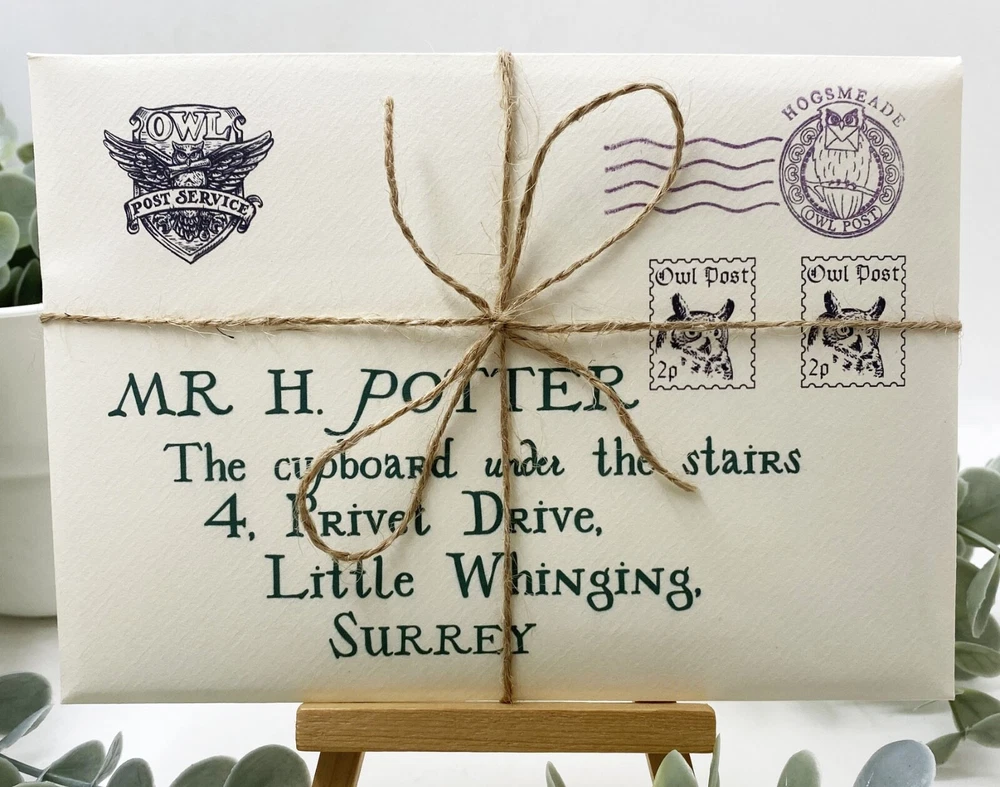 OWL
POST SERVICE
HOGSMEADE
OWL POST
Owl Post
2p
Owl Post
2p
MR H. POTTER
The cupboard under the stairs
4, Privet Drive,
Little Whinging,
SURREY